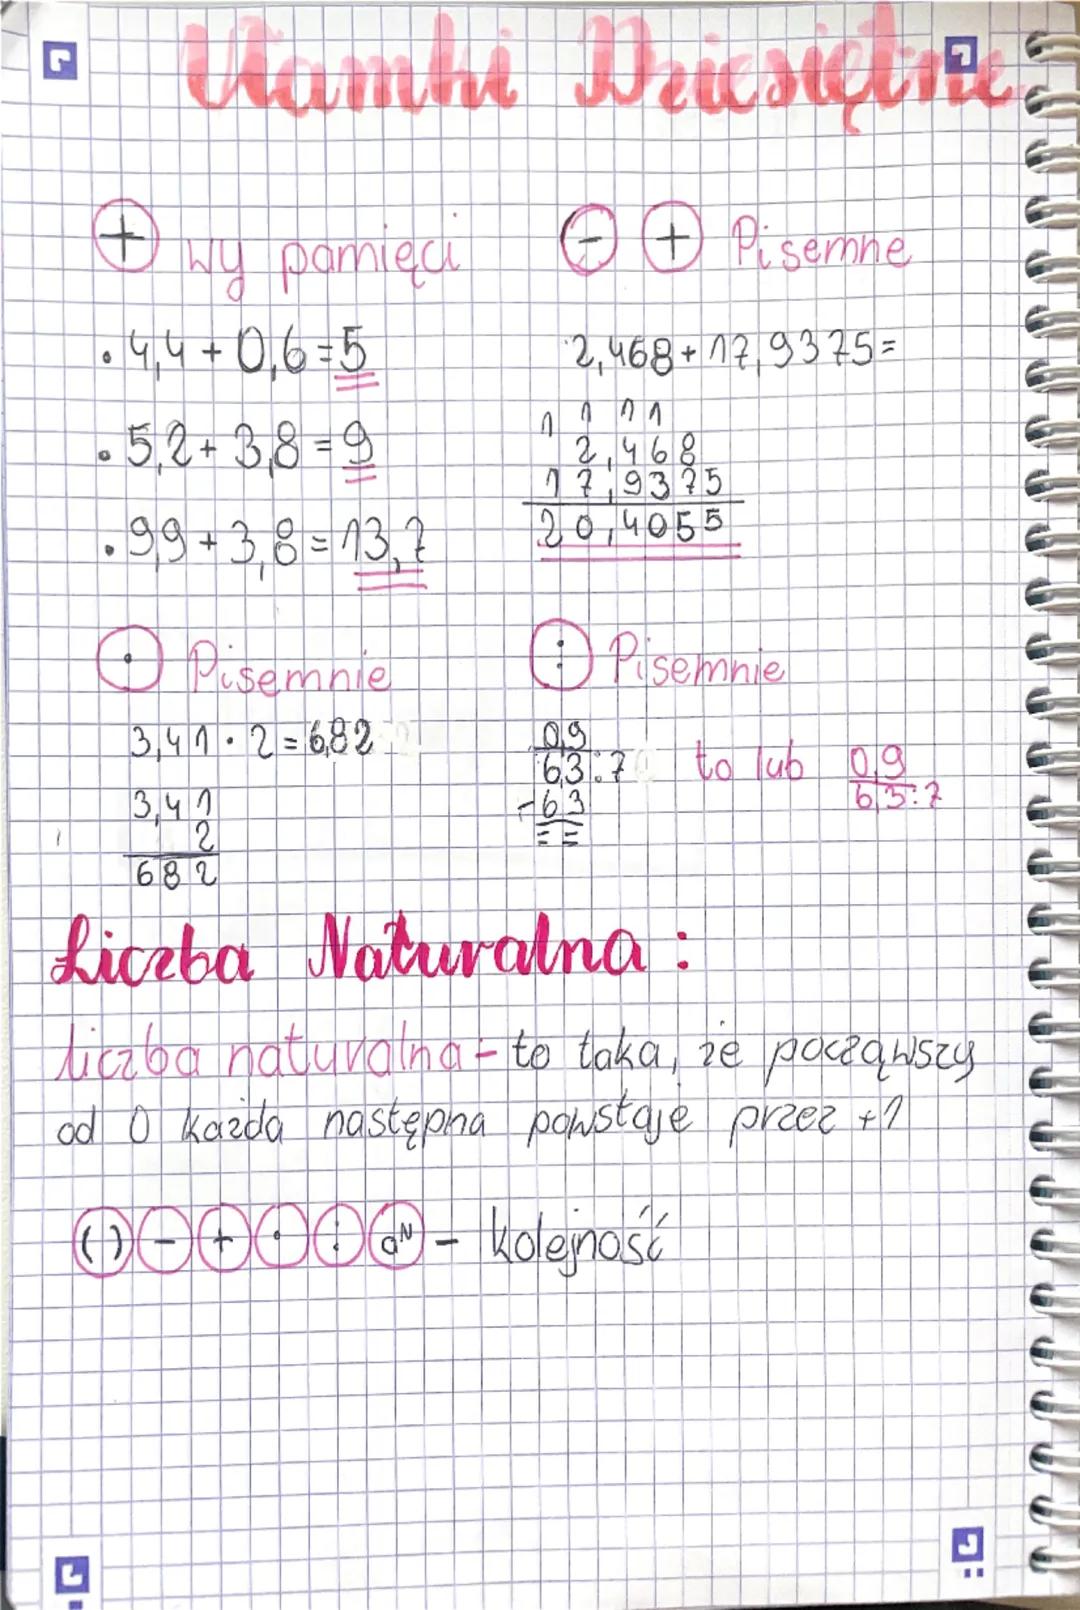 Ułamki Dziesiętne
+ wy pamięci
- + Pisemne
• 4,4 + 0,6 = 5
• 5,2 + 3,8 = 9
• 9,9 + 3,8 = 13,7
2,468 + 17,9375 =
1 1 1 1
2,468
17,9375
20,4055
• Pisemnie
3,41 · 2 = 6,82
3,41
2
682
: Pisemnie
0,9
6,3 : 7
- 6 3
= =
to lub
0,9
6,3 : 7
Liczba Naturalna :
liczba naturalna - to taka, że począwszy
od 0 każda następna powstaje przez +1
( ) - + · : aᴺ - kolejność